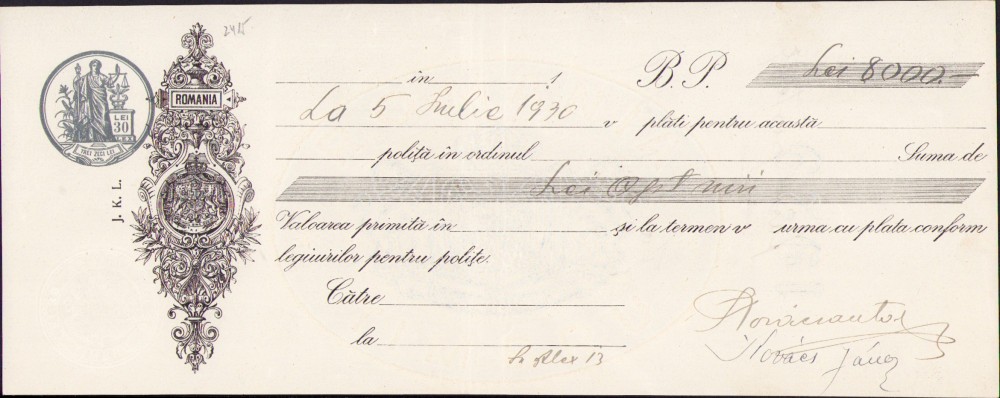 24
ROMANIA
LEI
30
TREI ZECI LEI
J. K. L.
în 1 B. P. Lei 8000.-
La 5 Iulie 1930 v plăti pentru această
poliță în ordinul Suma de
Lei Opt mii
Valoarea primită în și la termen v urma cu plata conform
legiuirilor pentru polițe.
Către
la
Alex 13
Kovács János